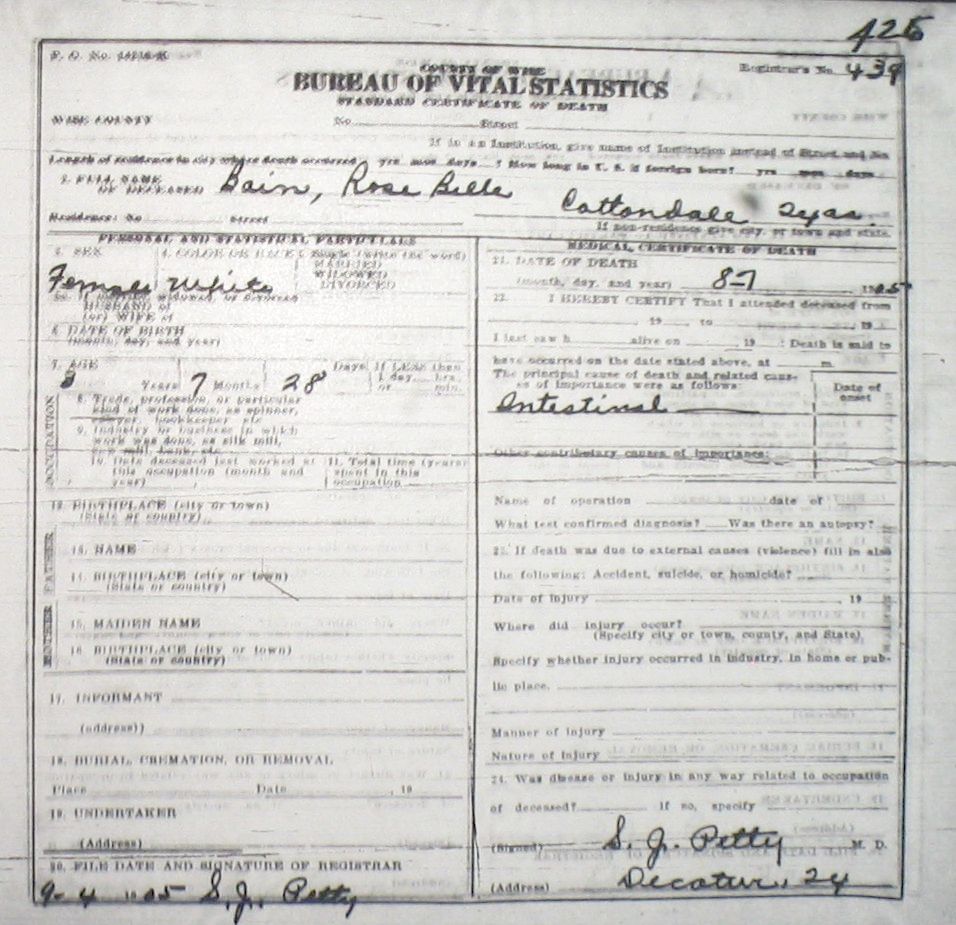 425
F. O. No. 14218-K
COUNTY OF WISE
Registrar's No. 439
BUREAU OF VITAL STATISTICS
STANDARD CERTIFICATE OF DEATH
WISE COUNTY No. Street
If in an Institution, give name of Institution instead of Street and No
Length of residence in city where death occurred yrs mos days ? How long in U. S. if foreign born? yrs mos days
2. FULL NAME
OF DECEASED Bain, Rose Belle
Cottondale Texas
Residence: No Street
If non-residence give city, or town and state
PERSONAL AND STATISTICAL PARTICULARS
3. SEX 4. COLOR OR RACE 5. Single (write the word)
MARRIED
WIDOWED
DIVORCED
Female White
HUSBAND of
(or) WIFE of
6. DATE OF BIRTH
(month, day, and year)
7. AGE Days If LESS than
3 Years 7 Months 28 1 day hrs.
or min.
OCCUPATION
8. Trade, profession, or particular
kind of work done, as spinner,
sawyer, bookkeeper etc
9. Industry or business in which
work was done, as silk mill,
saw mill, bank, etc.
10. Date deceased last worked at
this occupation (month and
year)
11. Total time (years)
spent in this
occupation
12. BIRTHPLACE (city or town)
(State or country)
FATHER
13. NAME
14. BIRTHPLACE (city or town)
(State or country)
MOTHER
15. MAIDEN NAME
16. BIRTHPLACE (city or town)
(State or country)
17. INFORMANT
(address))
18. BURIAL, CREMATION, OR REMOVAL
Place Date , 19
19. UNDERTAKER
(Address)
20. FILE DATE AND SIGNATURE OF REGISTRAR
9-4 05 S. J. Petty
MEDICAL CERTIFICATE OF DEATH
21. DATE OF DEATH
(month, day, and year) 8-7 05
22. I HEREBY CERTIFY That I attended deceased from
, 19 , to , 19
I last saw h alive on , 19 : Death is said to
have occurred on the date stated above, at m.
The principal cause of death and related caus-
es of importance were as follows:
Date of
onset
Intestinal
Other contributary causes of importance:
Name of operation date of
What test confirmed diagnosis? Was there an autopsy?
23. If death was due to external causes (violence) fill in also
the following: Accident, suicide, or homicide?
Date of Injury 19
Where did injury occur?
(Specify city or town, county, and State)
Specify whether injury occurred in industry, in home or pub-
lic place.
Manner of Injury
Nature of Injury
24. Was disease or injury in any way related to occupation
of deceased? If so, specify
(Signed) S. J. Petty M. D.
(Address) Decatur,